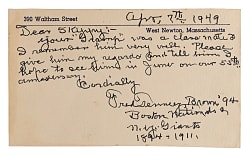 390 Waltham Street
West Newton, Massachusetts
Apr, 7th, 1949
Dear Skippy:-
Your "Gramp" was a class mate
I remember him very well. Please
give him my regards and tell him I
hope to see him in June on our 55th
anniversary.
Cordially
Fred Tenney Brown '94
Boston Nationals
N.Y. Giants
1894-1911.